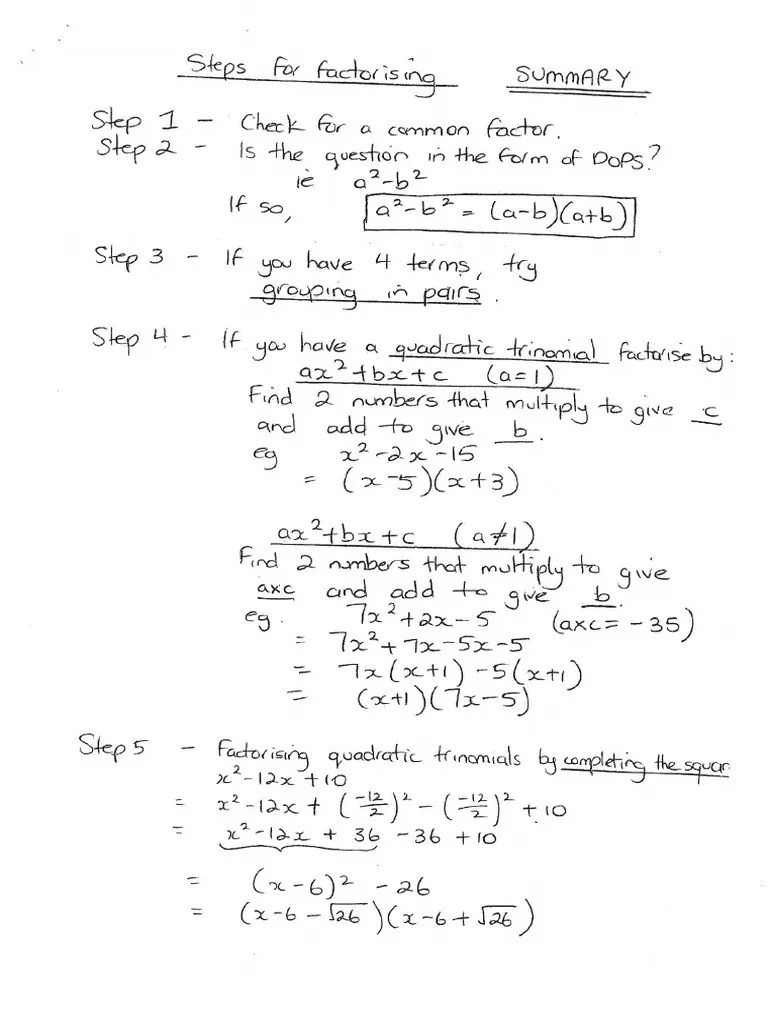 Steps for factorising SUMMARY
Step 1 - Check for a common factor.
Step 2 - Is the question in the form of DOPS?
ie a²-b²
If so, a²-b² = (a-b)(a+b)
Step 3 - If you have 4 terms, try
grouping in pairs.
Step 4 - If you have a quadratic trinomial factorise by:
ax²+bx+c (a=1)
Find 2 numbers that multiply to give c
and add to give b.
eg x²-2x-15
= (x-5)(x+3)
ax²+bx+c (a≠1)
Find 2 numbers that multiply to give
axc and add to give b.
eg. 7x²+2x-5 (axc = -35)
= 7x²+7x-5x-5
= 7x(x+1) -5(x+1)
= (x+1)(7x-5)
Step 5 - Factorising quadratic trinomials by completing the squar
x²-12x+10
= x²-12x+(-12/2)²-(-12/2)²+10
= x²-12x + 36 -36 +10
= (x-6)² -26
= (x-6-√26)(x-6+√26)